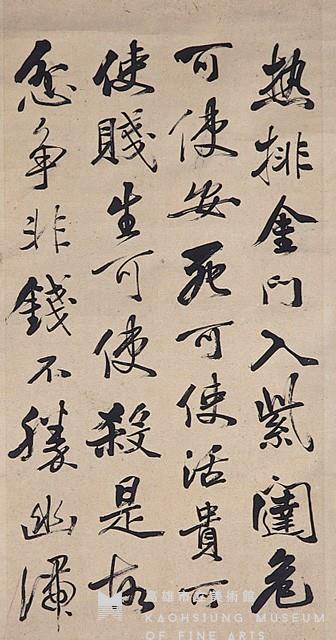 熱排金門入紫闥危
可使安死可使活貴可
使賤生可使殺是故
忿爭非錢不勝幽滯
高雄市立美術館
KAOHSIUNG MUSEUM
OF FINE ARTS